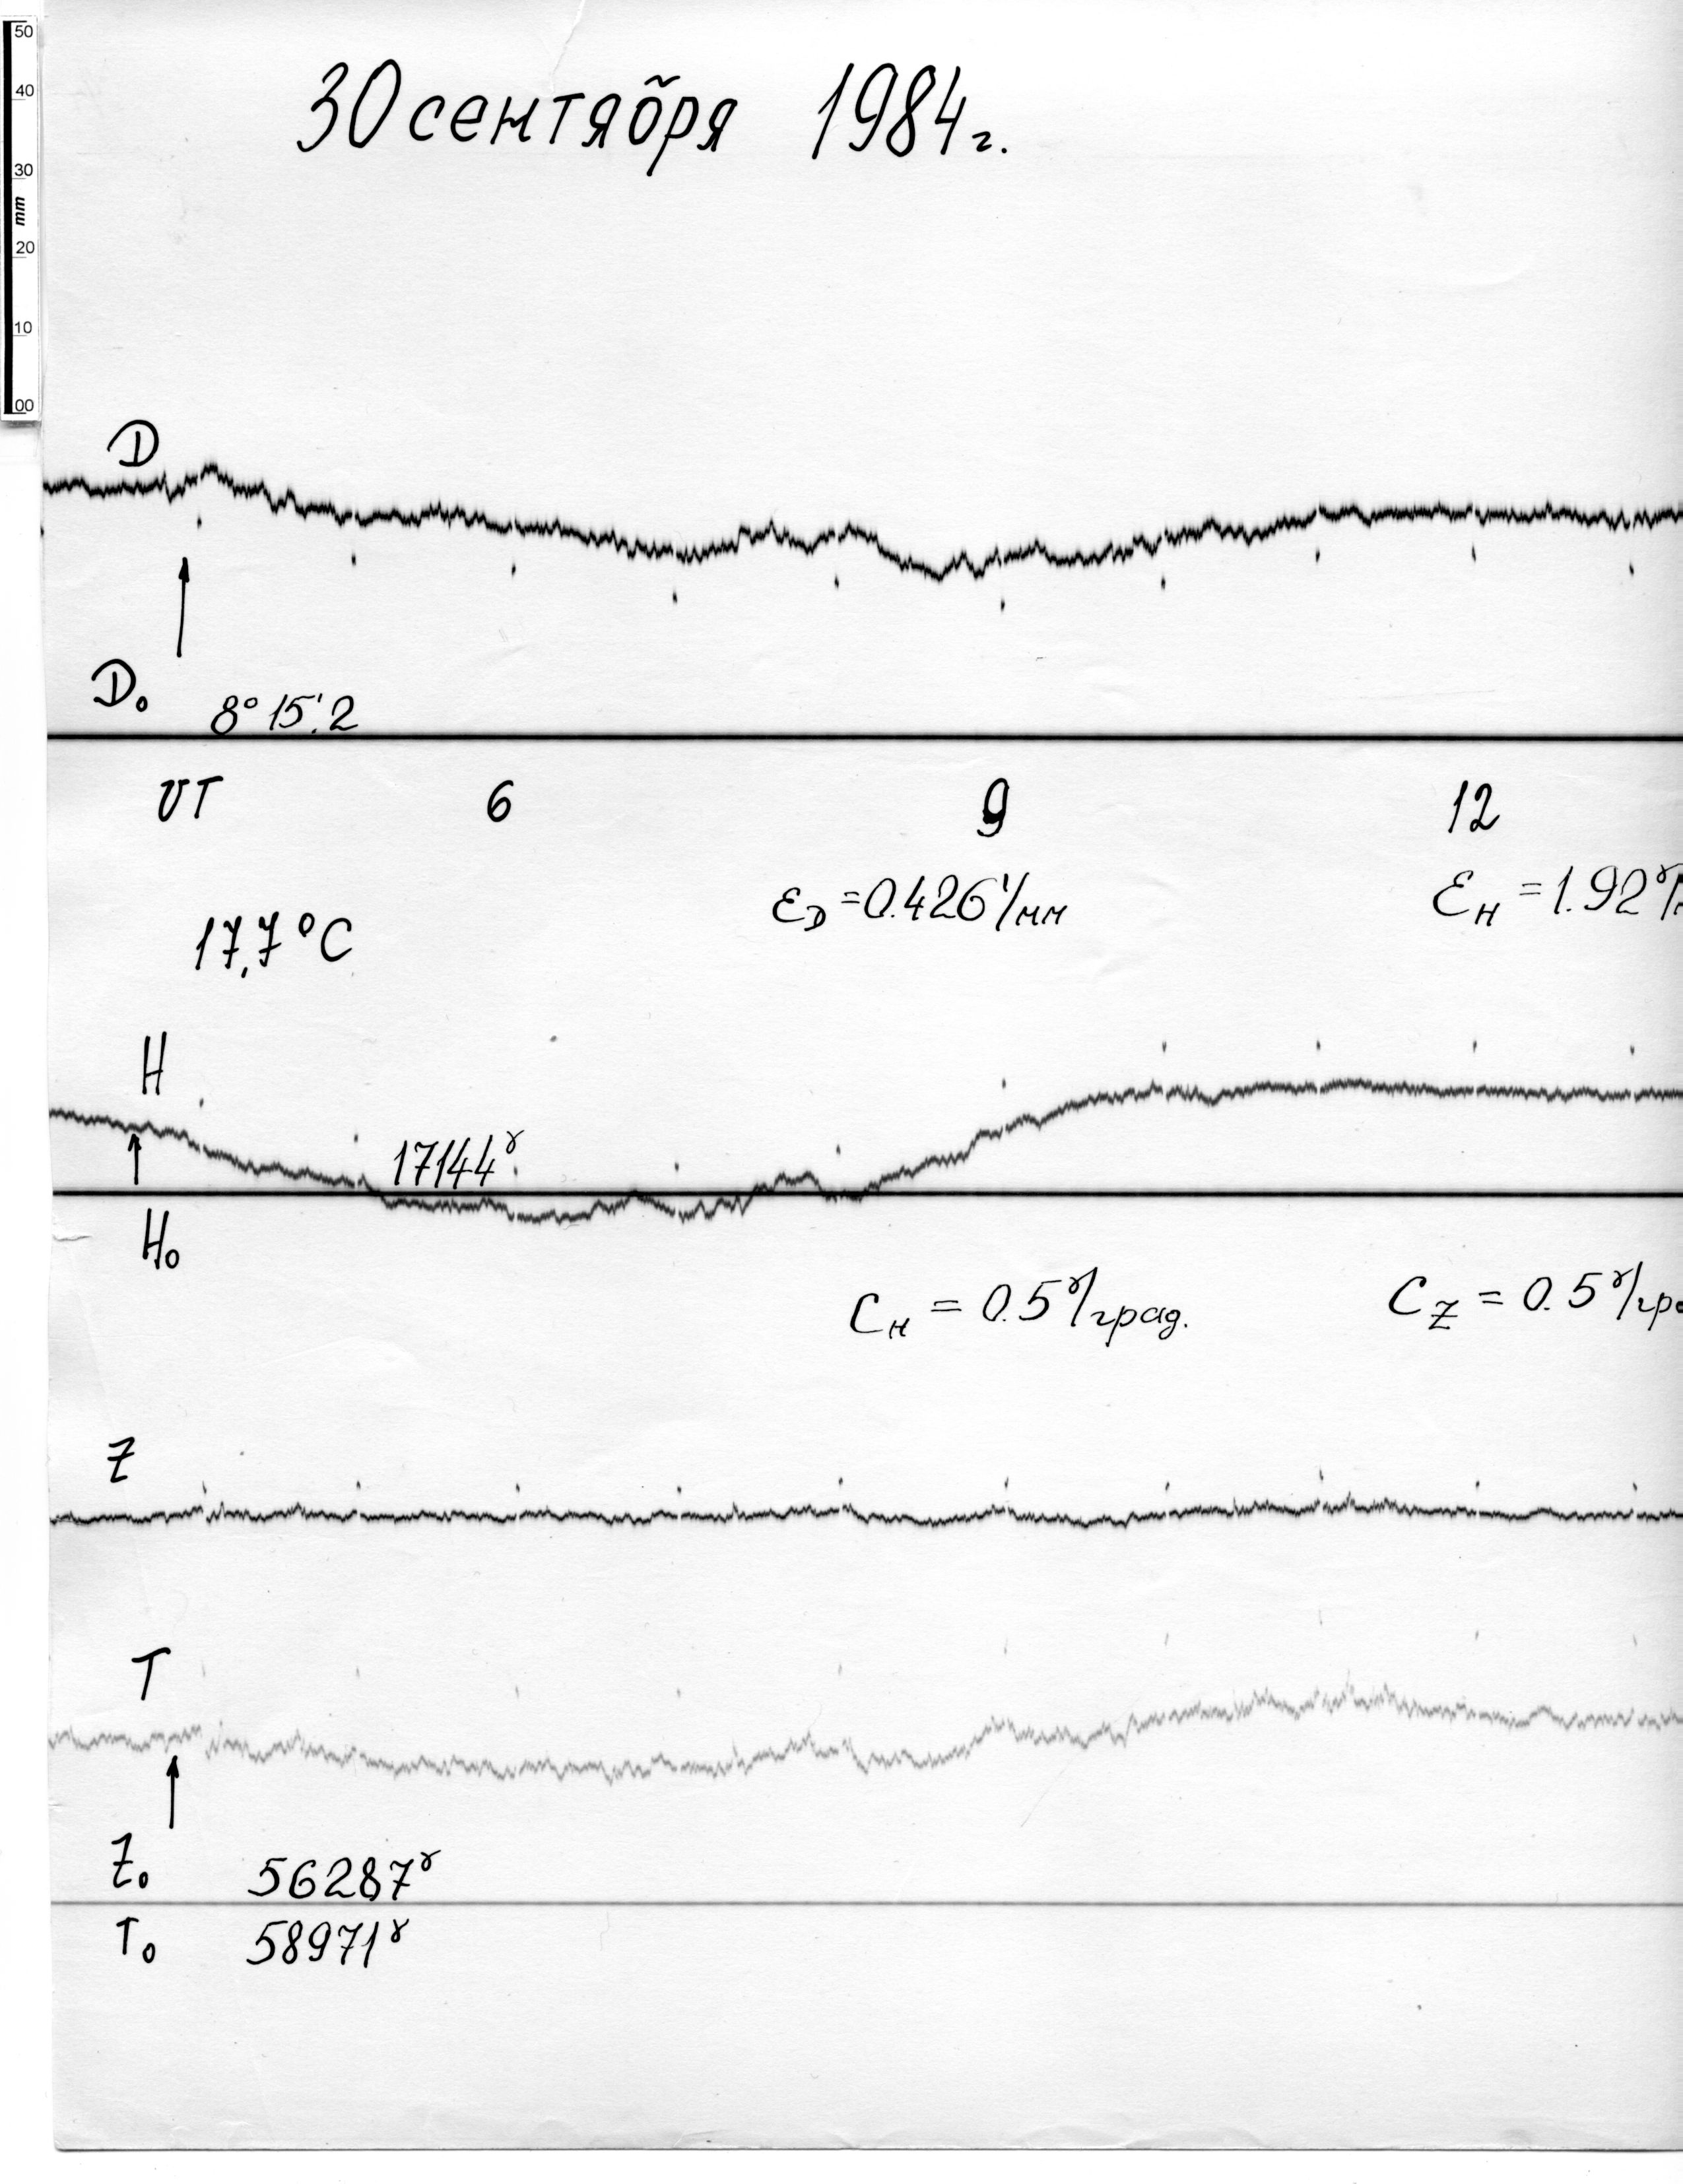 50
40
30
mm
20
10
00
30 сентября 1984 г.
D
D₀ 8° 15'.2
UT 6 9 12
ε_D = 0.426'/мм ε_H = 1.92ˠ/
17,7 °C
H
17144ˠ
H₀
C_H = 0.5ˠ/град. C_Z = 0.5ˠ/гра
Z
T
Z₀ 56287ˠ
T₀ 58971ˠ